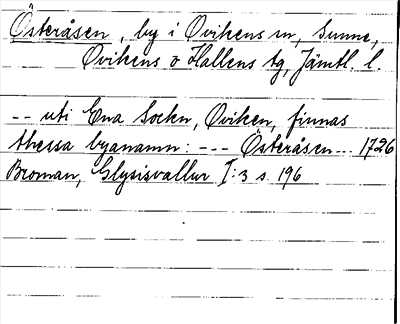 Österåsen, by i Ovikens sn, Sunne,
Ovikens o Hallens tg, Jämtl. l.
-- uti Ena Sockn, Oviken, finnas
thessa byanamn: --- Österåsen --- 1726
Broman, Glysisvallur I:3 s. 196